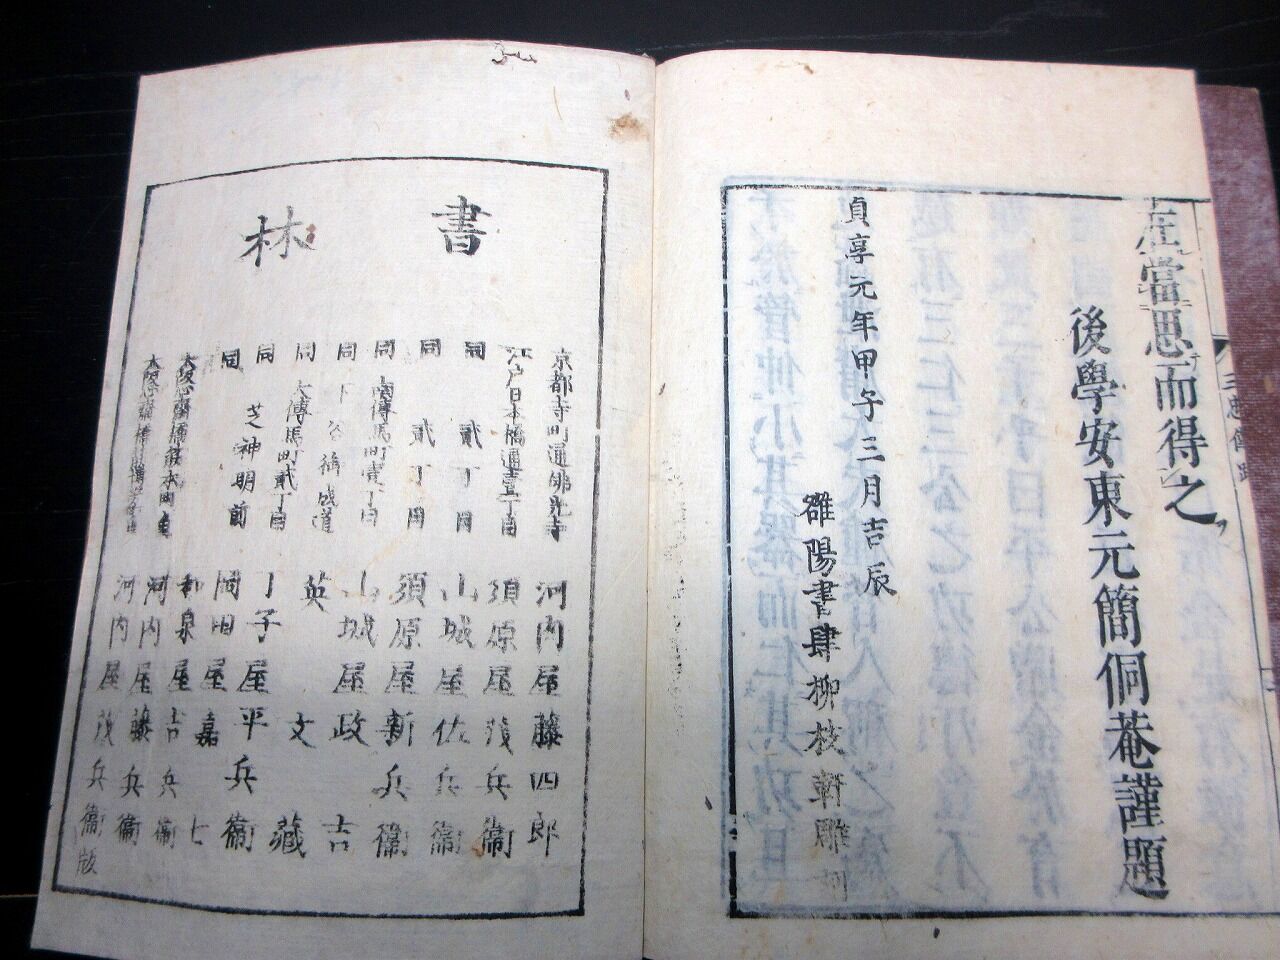 在當思而得之
後學安東元簡侗菴謹題
貞享元年甲子三月吉辰
雒陽書肆柳枝軒雕刊
三忠傳跋
書林
京都寺町通佛光寺 河内屋藤四郎
江戸日本橋通壹丁目 須原屋茂兵衞
同 貳丁目 山城屋佐兵衞
同 貳丁目 須原屋新兵衞
同 南傳馬町壹丁目 山城屋政吉
同 下谷御成道 英文藏
同 大傳馬町貳丁目 丁子屋平兵衞
同 芝神明前 岡田屋嘉七
大阪心齋橋筋本町 和泉屋吉兵衞
河内屋藤兵衞
大阪心齋橋 河内屋茂兵衞版